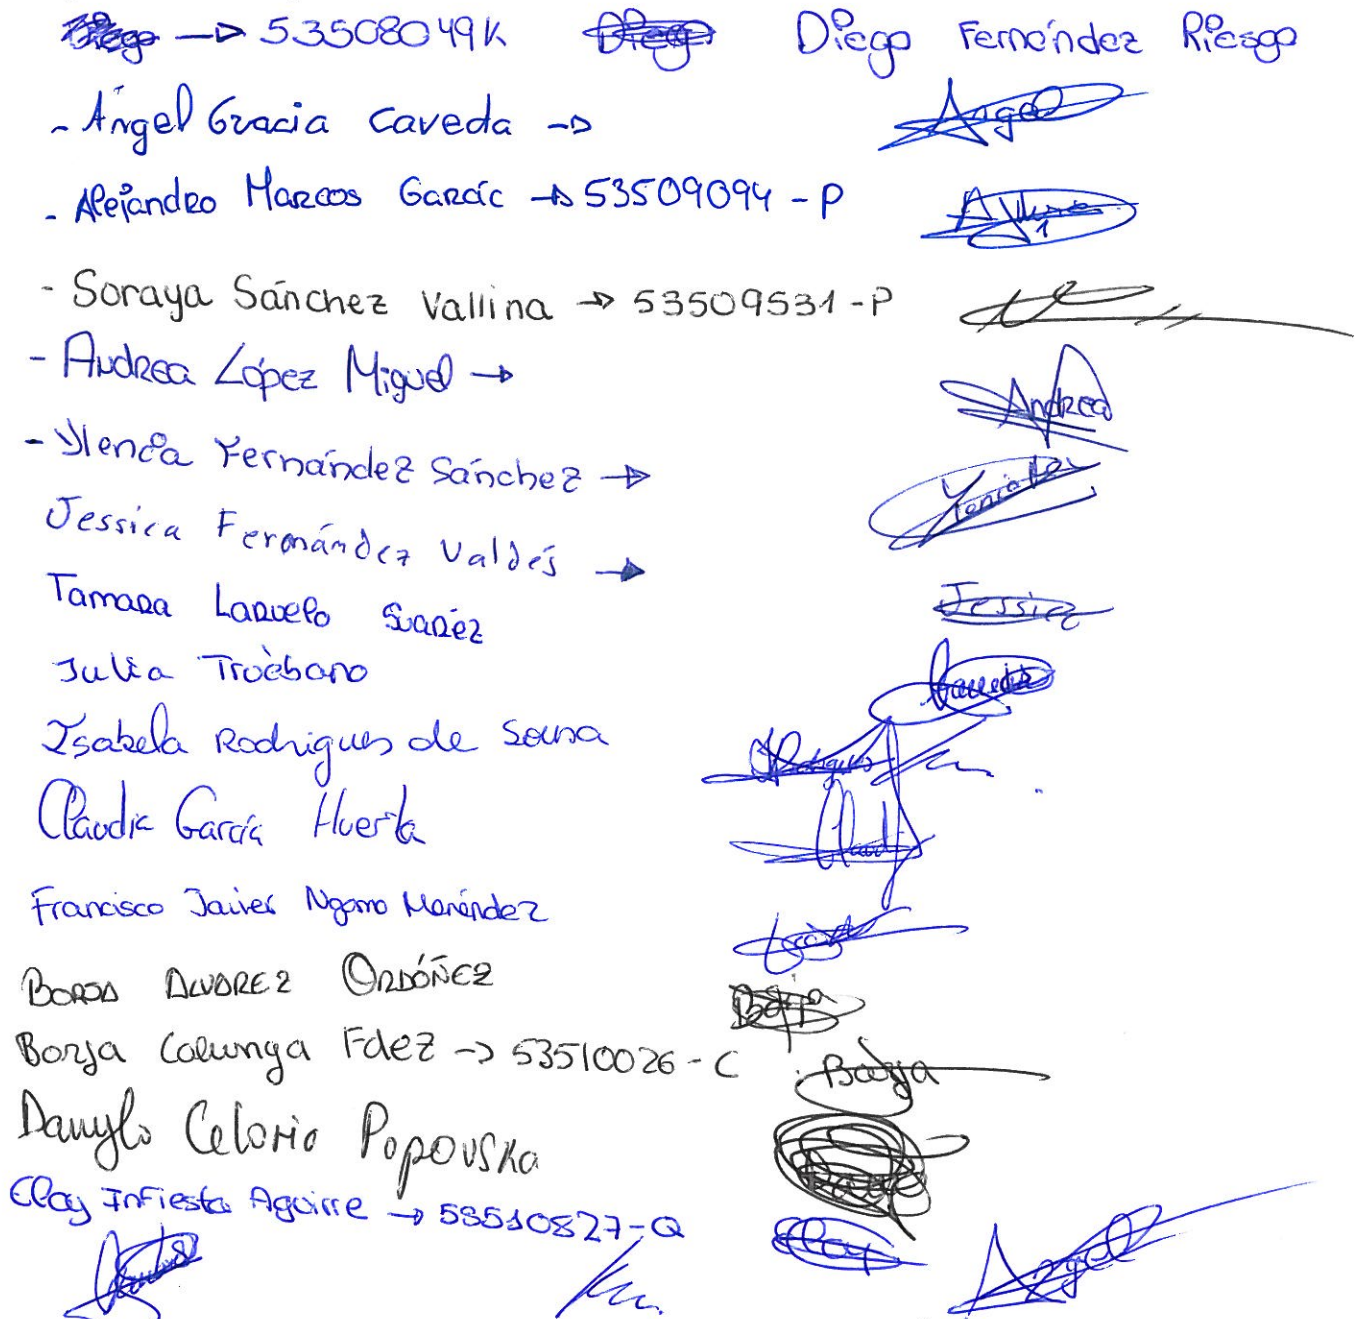 Diego → 53508049K Diego Diego Fernández Riesgo
- Ángel Gracia Caveda → Angel
- Alejandro Marcos García → 53509094-P
- Soraya Sánchez Vallina → 53509531-P
- Andrea López Miguel → Andrea
- Ylenia Fernández Sánchez → Ylenia
Jessica Fernández Valdés → Jessica
Tamara Laruelo Suárez
Julia Truébano
Isabela Rodrigues de Sousa
Claudia García Huerta Claudia
Francisco Javier Ngomo Menéndez
Borja Alvarez Ordóñez Borja
Borja Calunga Fdez → 53510026-C Borja
Danylo Celorio Popovska
Eloy Infiesta Aguirre → 53510827-Q Eloy
Angel